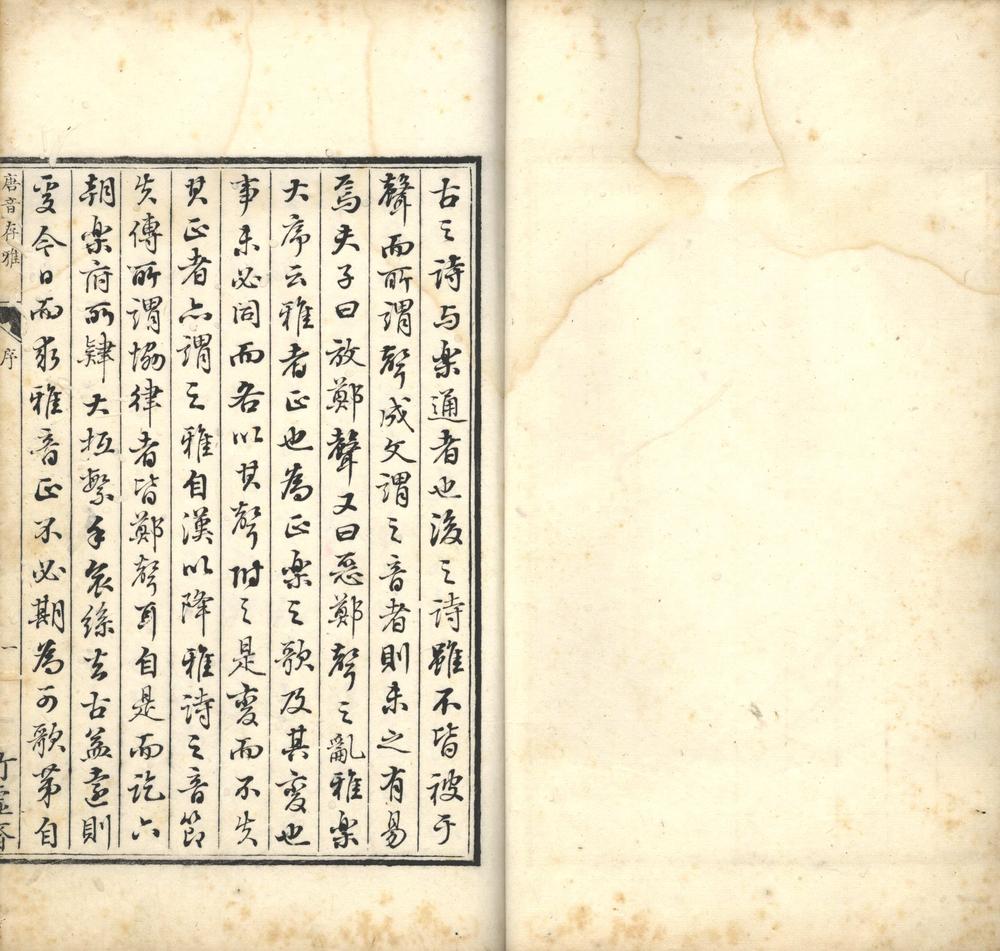 古之詩与樂通者也後之詩雖不皆被于
聲而所謂聲成文謂之音者則未之有易
焉夫子曰放鄭聲又曰惡鄭聲之亂雅樂
大序云雅者正也為正樂之歌及其變也
事未必同而各以其聲附之是變而不失
其正者亦謂之雅自漢以降雅詩之音節
失傳所謂協律者皆鄭聲耳自是而訖六
朝樂府所肄大抵繁手哀絲去古益遠則
受今日而求雅音正不必期為可歌第自
唐音存雅
序
一
竹靈齋